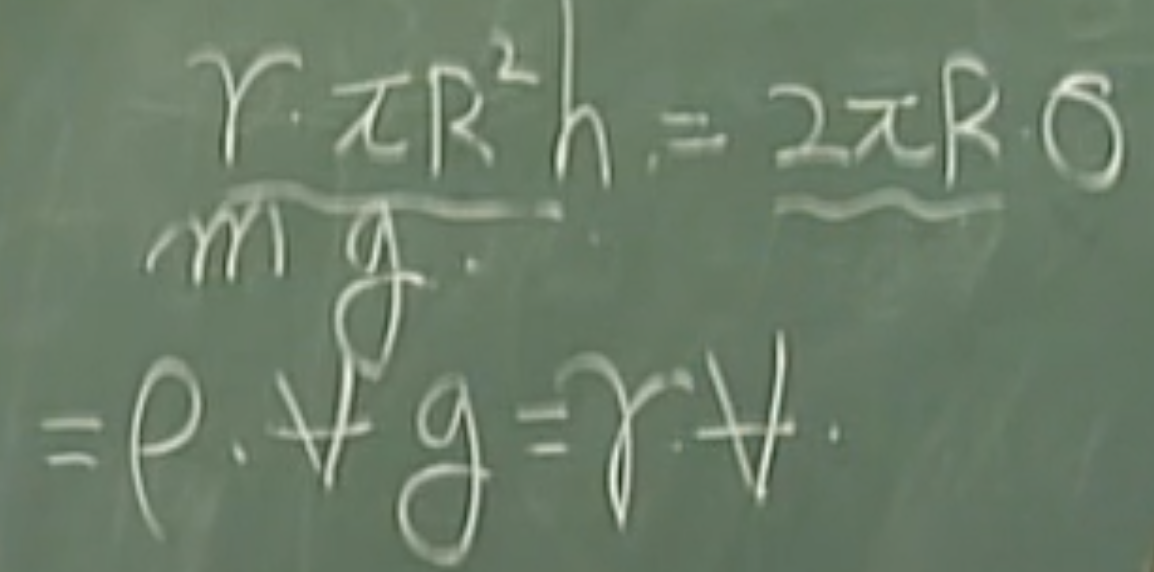 γ·πR²h = 2πR·σ
mg.
=ρ.V̶g=γ.V̶.